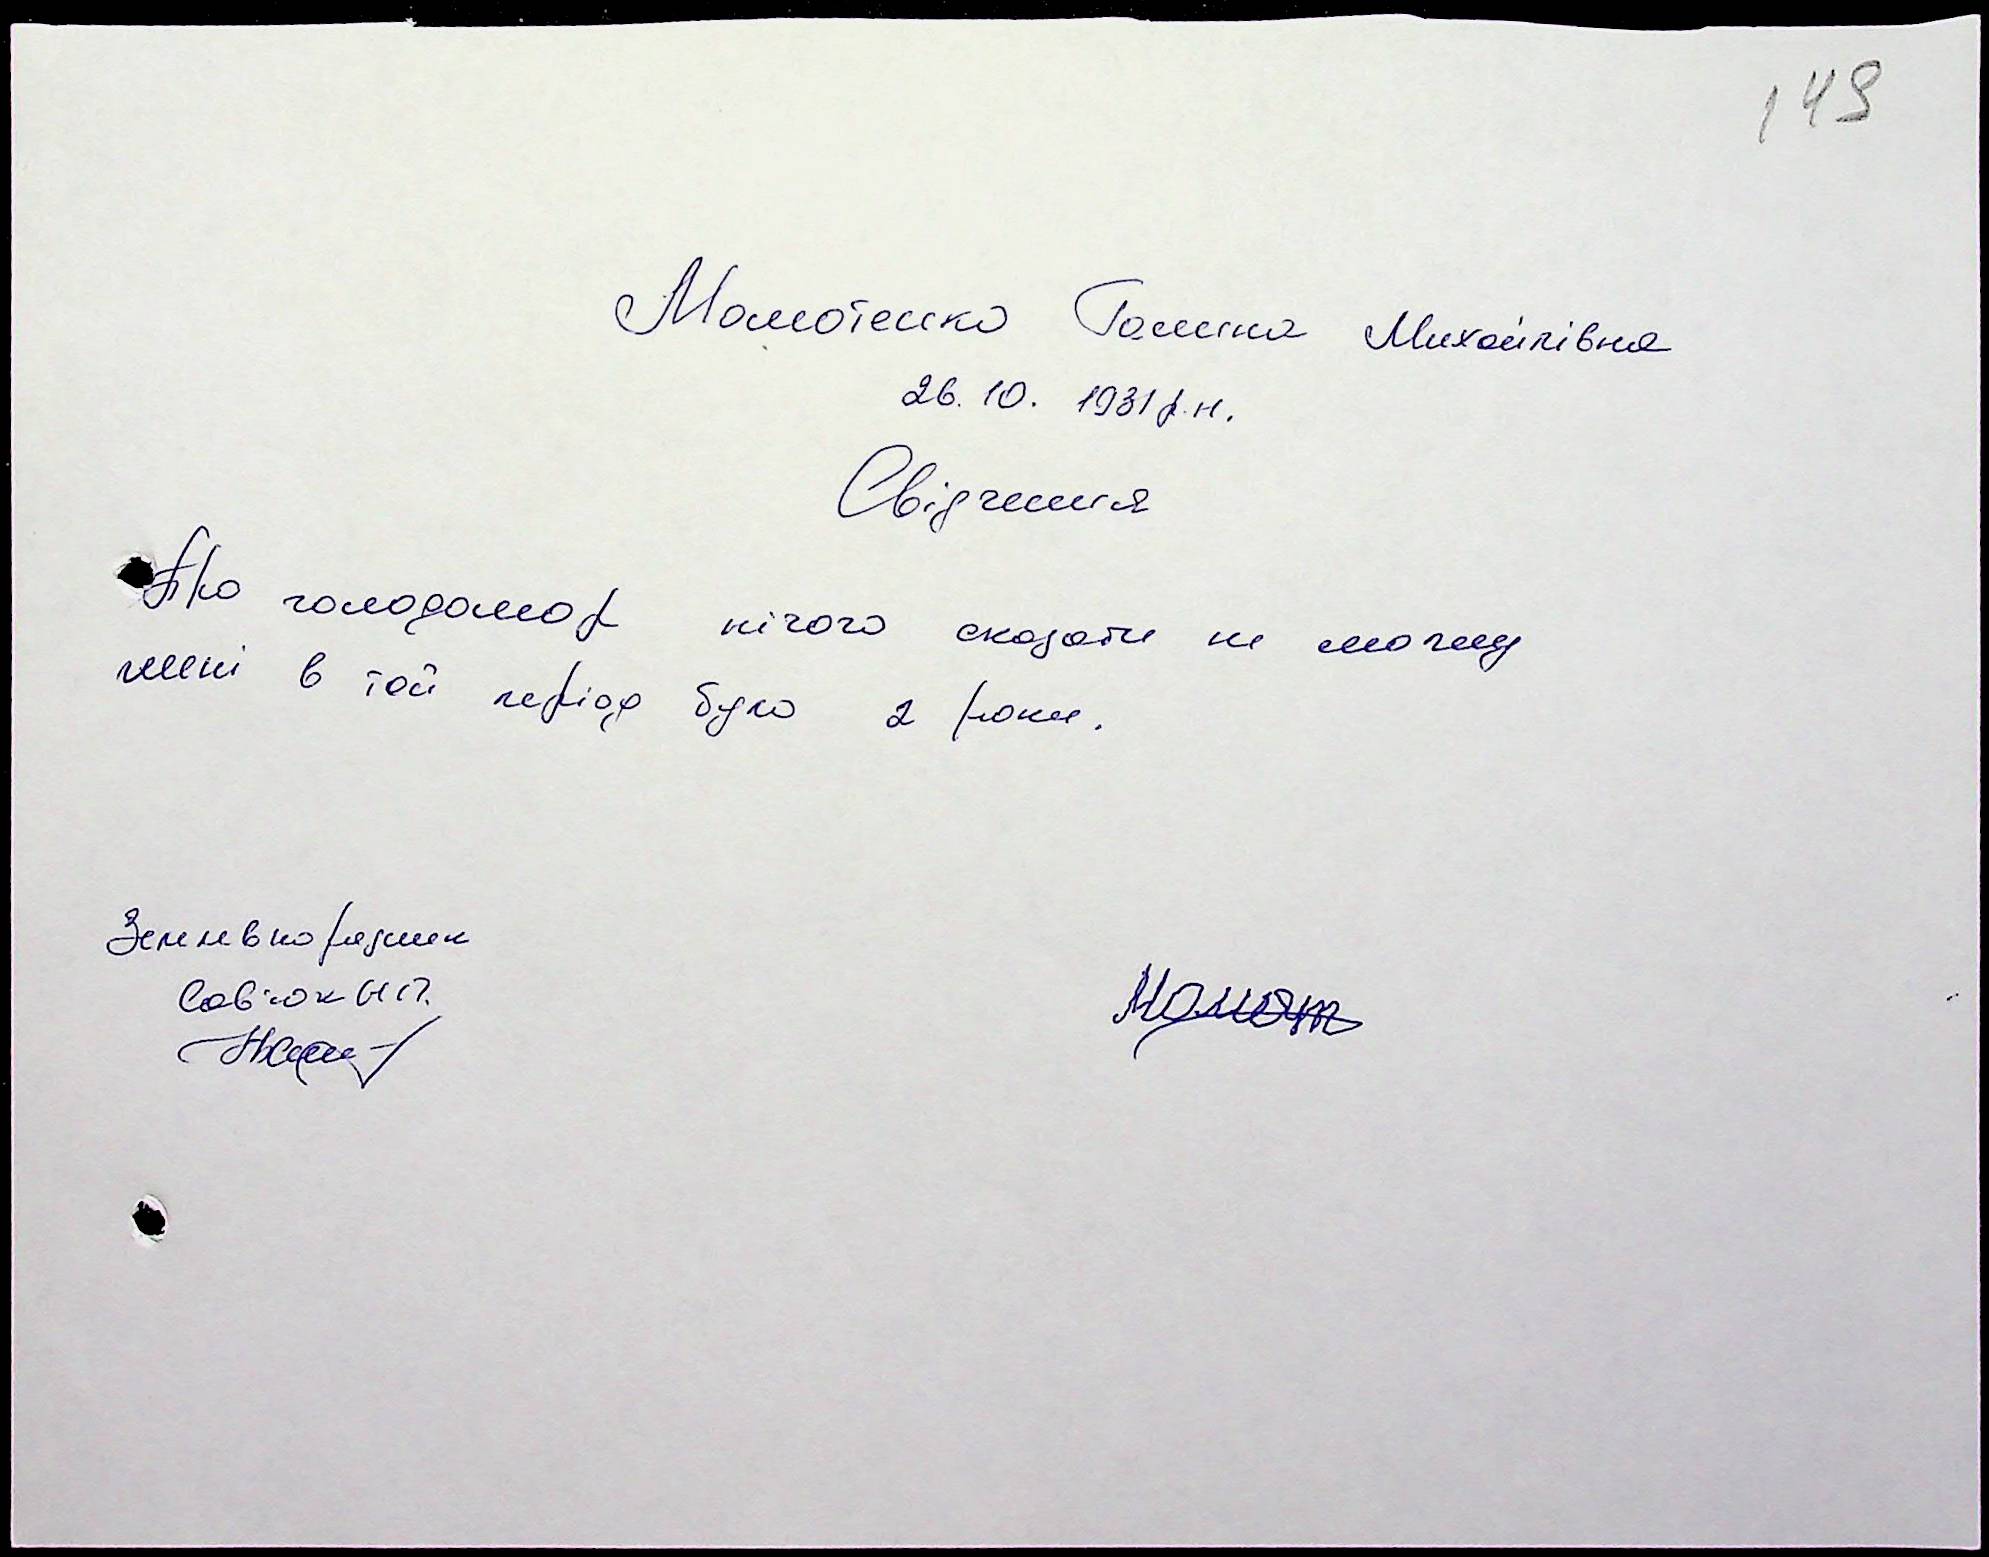 149
Момотенко Галина Михайлівна
26.10. 1931 р.н.
Свідчення
Про голодомор нічого сказати не можу
мені в той період було 2 роки.
Землевпорядник
Сав'юк Н П.
Момот